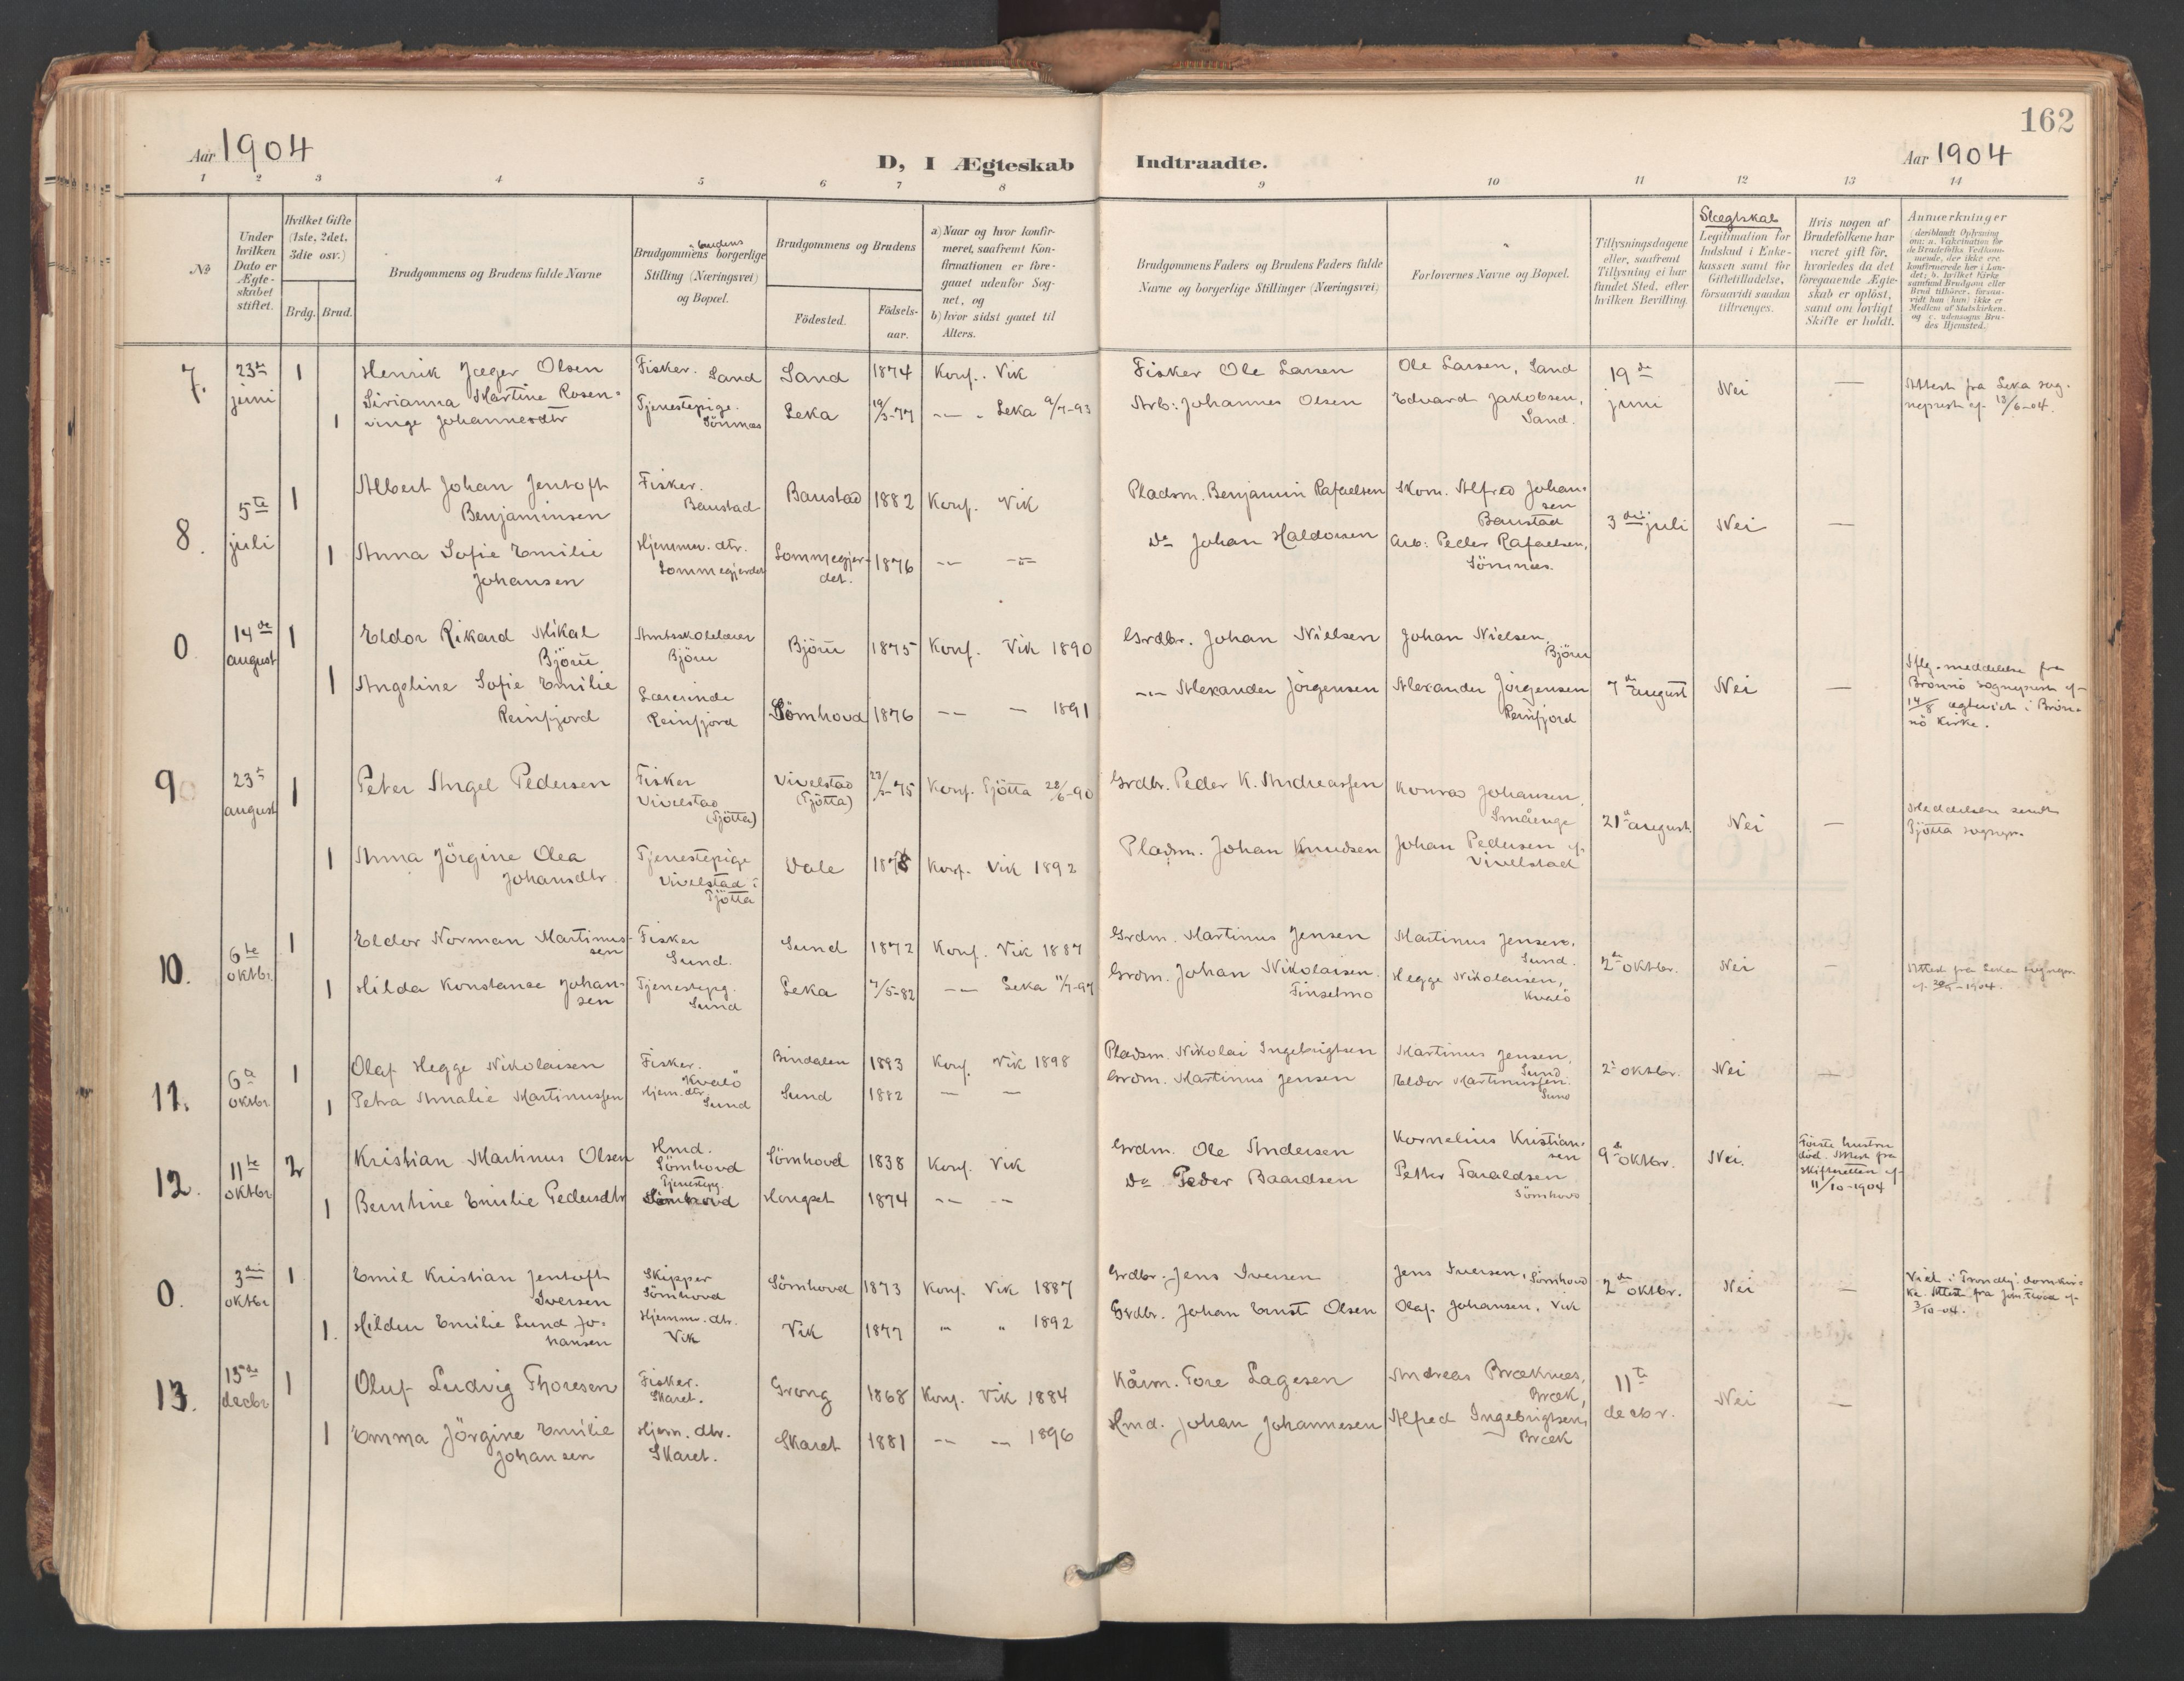 162
Aar 1904
D, I Ægteskab Indtraadte.
Aar 1904
1 2 3 4 5 6 7 8 9 10 11 12 13 14
No
Under hvilken Dato er Ægteskabet stiftet.
Hvilket Gifte (1ste, 2det, 3die osv.)
Brdg. Brud.
Brudgommens og Brudens fulde Navne
Brudgommens borgerlige Stilling (Næringsvei) og Bopæl.
Brudgommens og Brudens
Fødested.
Fødselsaar.
a) Naar og hvor konfirmeret, saafremt Konfirmationen er foregaaet udenfor Sognet, og
b) hvor sidst gaaet til Alters.
Brudgommens Faders og Brudens Faders fulde Navne og borgerlige Stillinger (Næringsvei)
Forlovernes Navne og Bopæl.
Tillysningsdagene eller, saafremt Tillysning ei har fundet Sted, efter hvilken Bevilling.
Slægtskab
Legitimation for Indskud i Enkekassen samt for Giftetilladelse, forsaavidt saadan tiltrænges.
Hvis nogen af Brudefolkene har været gift før, hvorledes da det foregaaende Ægteskab er opløst, samt om lovligt Skifte er holdt.
Anmærkninger
7. 23de juni 1 Henrik Jæger Olsen Fisker. Sand Sand 1874 Konf. Vik Fisker Ole Larsen Ole Larsen, Sand 19de juni Nei — Attest fra Leka sogneprest af 13/6-04.
1 Sirianna Martine Rosenvinge Johannesdtr Tjenestepige. Sömnæs Leka 19/3-77 —"— Leka 9/7-93 Arb: Johannes Olsen Edvard Jakobsen, Sand.
8. 5te juli 1 Albert Johan Jentoft Benjaminsen Fisker. Baustad Baustad 1882 Konf. Vik Pladsm. Benjamin Rafaelsen Skom. Alfred Johansen Baustad 3die juli Nei —
1 Anna Sofie Emilie Johansen Hjemmev. dtr. Sommegjerdet Sommegjerdet. 1876 —"— —"— Do Johan Haldorsen Arb: Peder Rafaelsen, Sömnæs.
0 14de august 1 Eldor Rikard Mikal Björu Amtsskolelærer Björu Björu 1875 Konf. Vik 1890 Grdbr. Johan Nielsen Johan Nielsen, Björu 7de august Nei — Iflg. meddelelse fra Brönnö sogneprest af 14/8 ægteviet i Brönnö Kirke.
1 Angeline Sofie Emilie Reinfjord Lærerinde Reinfjord Sömhovd 1876 —"— — 1891 —"— Alexander Jörgensen Alexander Jörgensen Reinfjord
9 23de august 1 Peter Angel Pedersen Fisker Vivelstad (Tjötta) Vivelstad (Tjötta) 75 Konf. Tjötta 22/6-90 Grdbr. Peder K. Andreassen Konrad Johansen, Småenge 21de august. Nei — Meddelelse sendt Tjötta sognepr.
1 Anna Jörgine Olea Johansdtr. Tjenestepige Vivelstad i Tjötta Vale 1878 Konf. Vik 1892 Pladsm. Johan Knudsen Johan Pedersen af Vivelstad
10. 6te oktbr. 1 Eldor Norman Martinussen Fisker Sund. Sund 1872 Konf. Vik 1887 Grdm. Martinus Jensen Martinus Jensen, Sund. 2de oktbr. Nei — Attest fra Leka sognepr. 1904.
1 Hilda Konstanse Johansen Tjenestepg. Sund Leka 7/5-82 —"— Leka 11/7-97 Grdm. Johan Nikolaisen. Finselmo Hegge Nikolaisen, Kvalö
11. 6te oktbr. 1 Olaf Hegge Nikolaisen Fisker. Kvalö Bindalen 1883 Konf. Vik 1898 Pladsm. Nikolai Ingebrigtsen Martinus Jensen, Sund 2de oktbr. Nei —
1 Petra Amalie Martinussen Hjem. dtr. Sund Sund 1882 — — Grdm. Martinus Jensen Eldor Martinussen. Sund
12. 11te oktbr 2 Kristian Martinus Olsen Hmd. Sömhovd Sömhovd 1838 Konf. Vik Grdm. Ole Andersen Kornelius Kristiansen 9de oktbr. Nei. Förste hustru död. Attest fra skifteretten af 11/10-1904
1 Berntine Emilie Pedersdtr Tjenestepg. Sömhovd Hongset 1874 —"— —"— Do Peder Baardsen Petter Taraldsen Sömhovd
0. 3die oktbr 1 Emil Kristian Jentoft Iversen Skipper Sömhovd Sömhovd 1873 Konf. Vik 1887 Grdbr. Jens Iversen Jens Iversen, Sömhovd 2de oktbr. Nei — Viet i Trondhj. domkirke. Attest fra af 3/10-04.
1. Hildur Emilie Lund Johansen Hjemmv. dtr. Vik Vik 1877 " " 1892 Grdbr. Johan Ernst Olsen Olaf Johansen, Vik
13. 15de decbr 1 Oluf Ludvig Thoresen Fisker. Skaret. Grong 1868 Konf. Vik 1884 Kårm. Tore Lagesen Andreas Bræknæs, Bræk, 11te decbr. Nei —
1 Emma Jörgine Emilie Johansen Hjem. dtr. Skaret. Skaret 1881 —"— —"— 1896 Hmd. Johan Johannesen Alfred Ingebrigtsen, Bræk